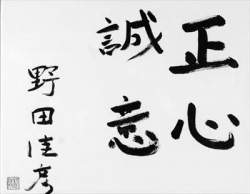 正心
誠意
野田佳彦